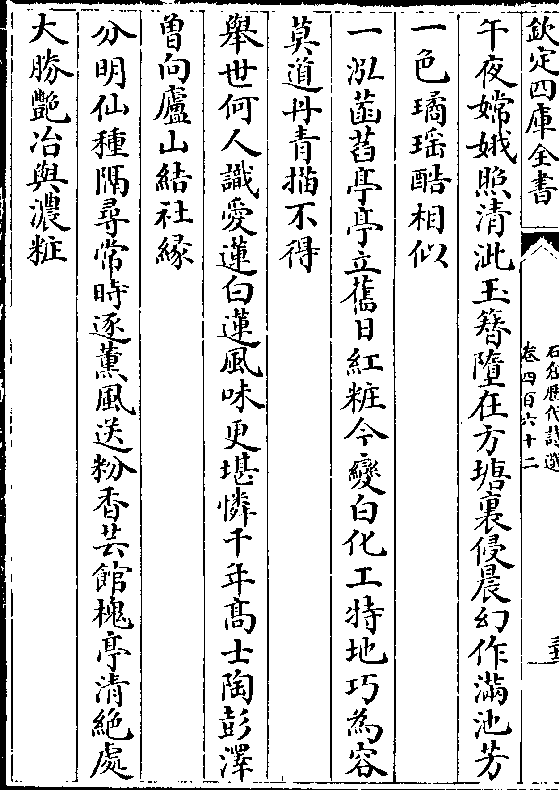 欽定四庫全書
石倉歴代詩選
卷四百六十二
午夜嫦娥照清泚玉簪墮在方塘裏侵晨幻作滿池芳
一色璚瑶酷相似
一泓菡萏亭亭立舊日紅粧今變白化工特地巧為容
莫道丹青描不得
舉世何人識愛蓮白蓮風味更堪憐千年髙士陶彭澤
曽向廬山結社縁
分明仙種隔尋常時逐薰風送粉香芸館槐亭清絶處
大勝艶冶與濃粧